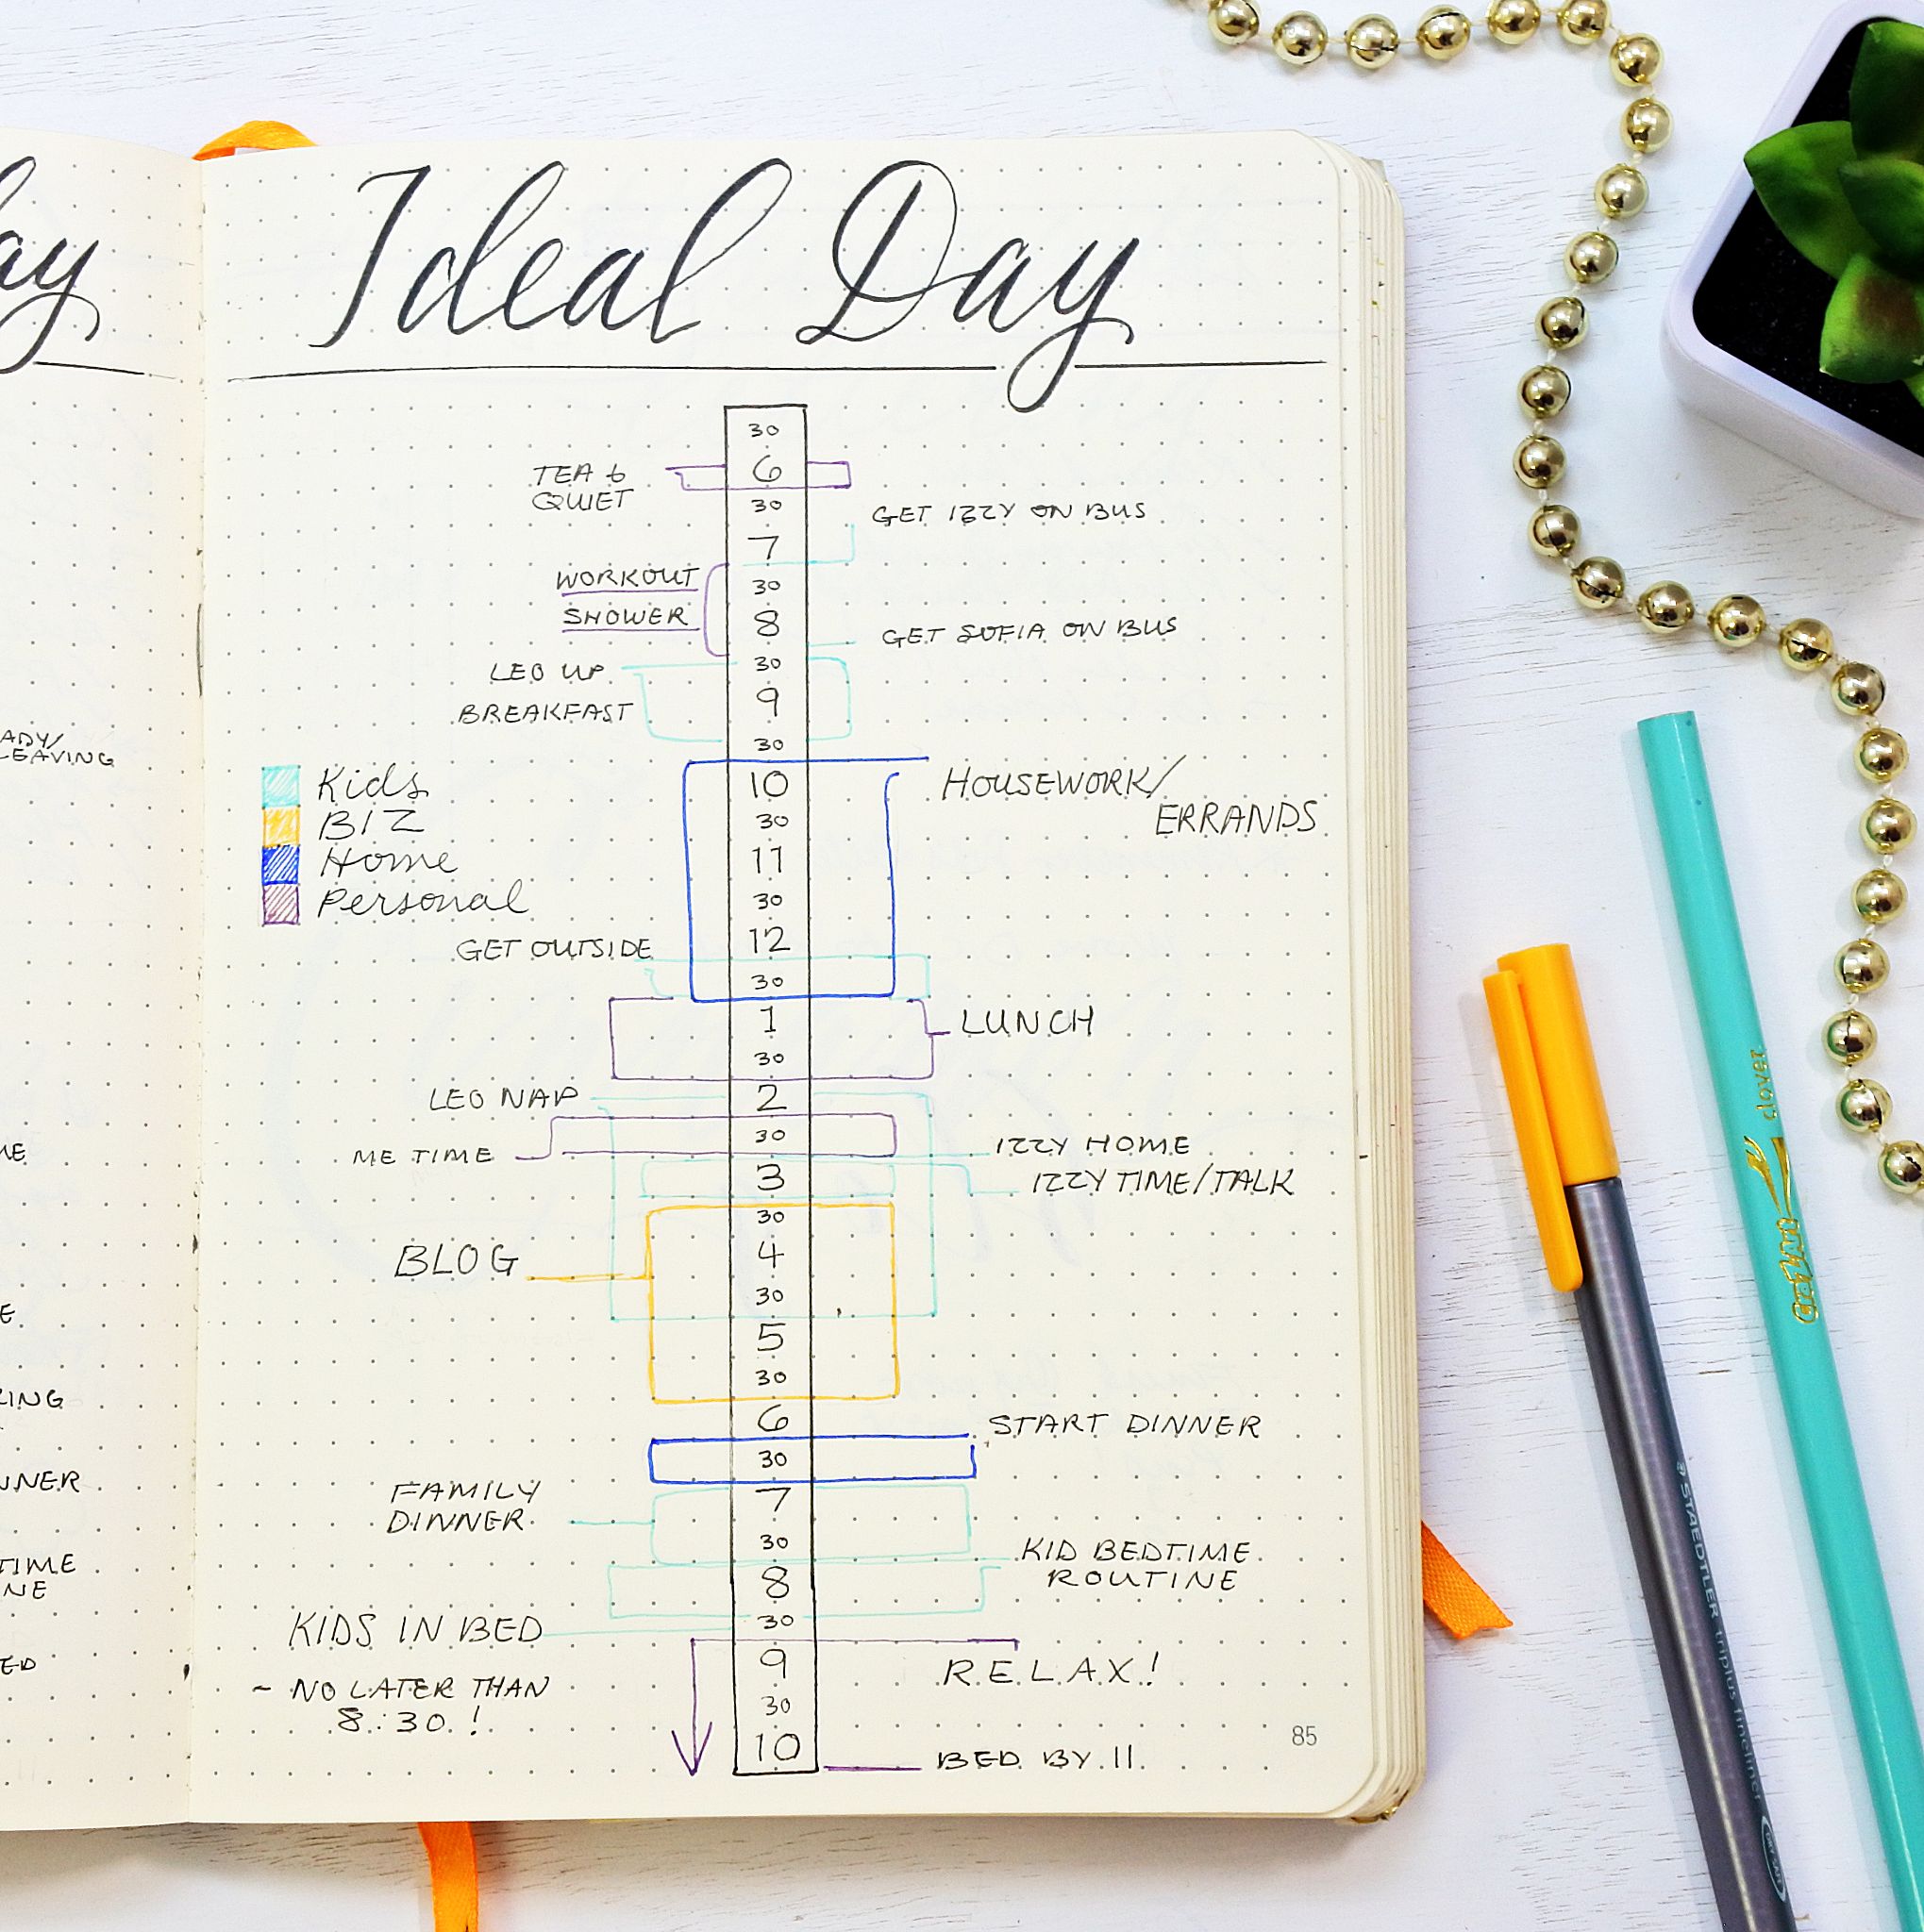 ay
Ideal Day
30
TEA &
QUIET
6
30
GET IZZY ON BUS
7
WORKOUT
30
SHOWER
8
GET SOFIA ON BUS
LEO UP
30
9
BREAKFAST
30
ADY/
LEAVING
Kids
BIZ
Home
Personal
10
HOUSEWORK/
ERRANDS
30
11
30
GET OUTSIDE
12
30
1
LUNCH
30
LEO NAP
2
30
ME TIME
IZZY HOME
3
IZZY TIME/TALK
30
BLOG
4
30
5
30
6
START DINNER
30
NNER
FAMILY
DINNER
7
30
KID BEDTIME
ROUTINE
TIME
NE
8
30
KIDS IN BED
~ NO LATER THAN
8:30!
9
R.E.L.A.X!
30
10
BED BY 11.
ED
85
clover
Cra-Z-Art
STAEDTLER triplus fineliner